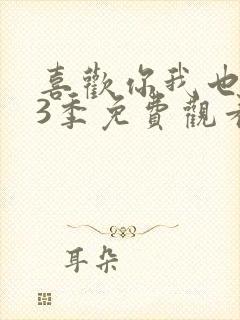 喜歡你我也
3季免費觀看
耳朵